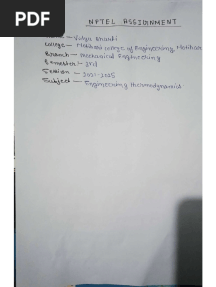 PDF
NPTEL ASSIGNMENT
Name - Vidya Bharti
College - Motihari college of Engineering, Motihari
Branch - Mechanical Engineering
Semester -
Session - 2021-2025
Subject - Engineering thermodynamics